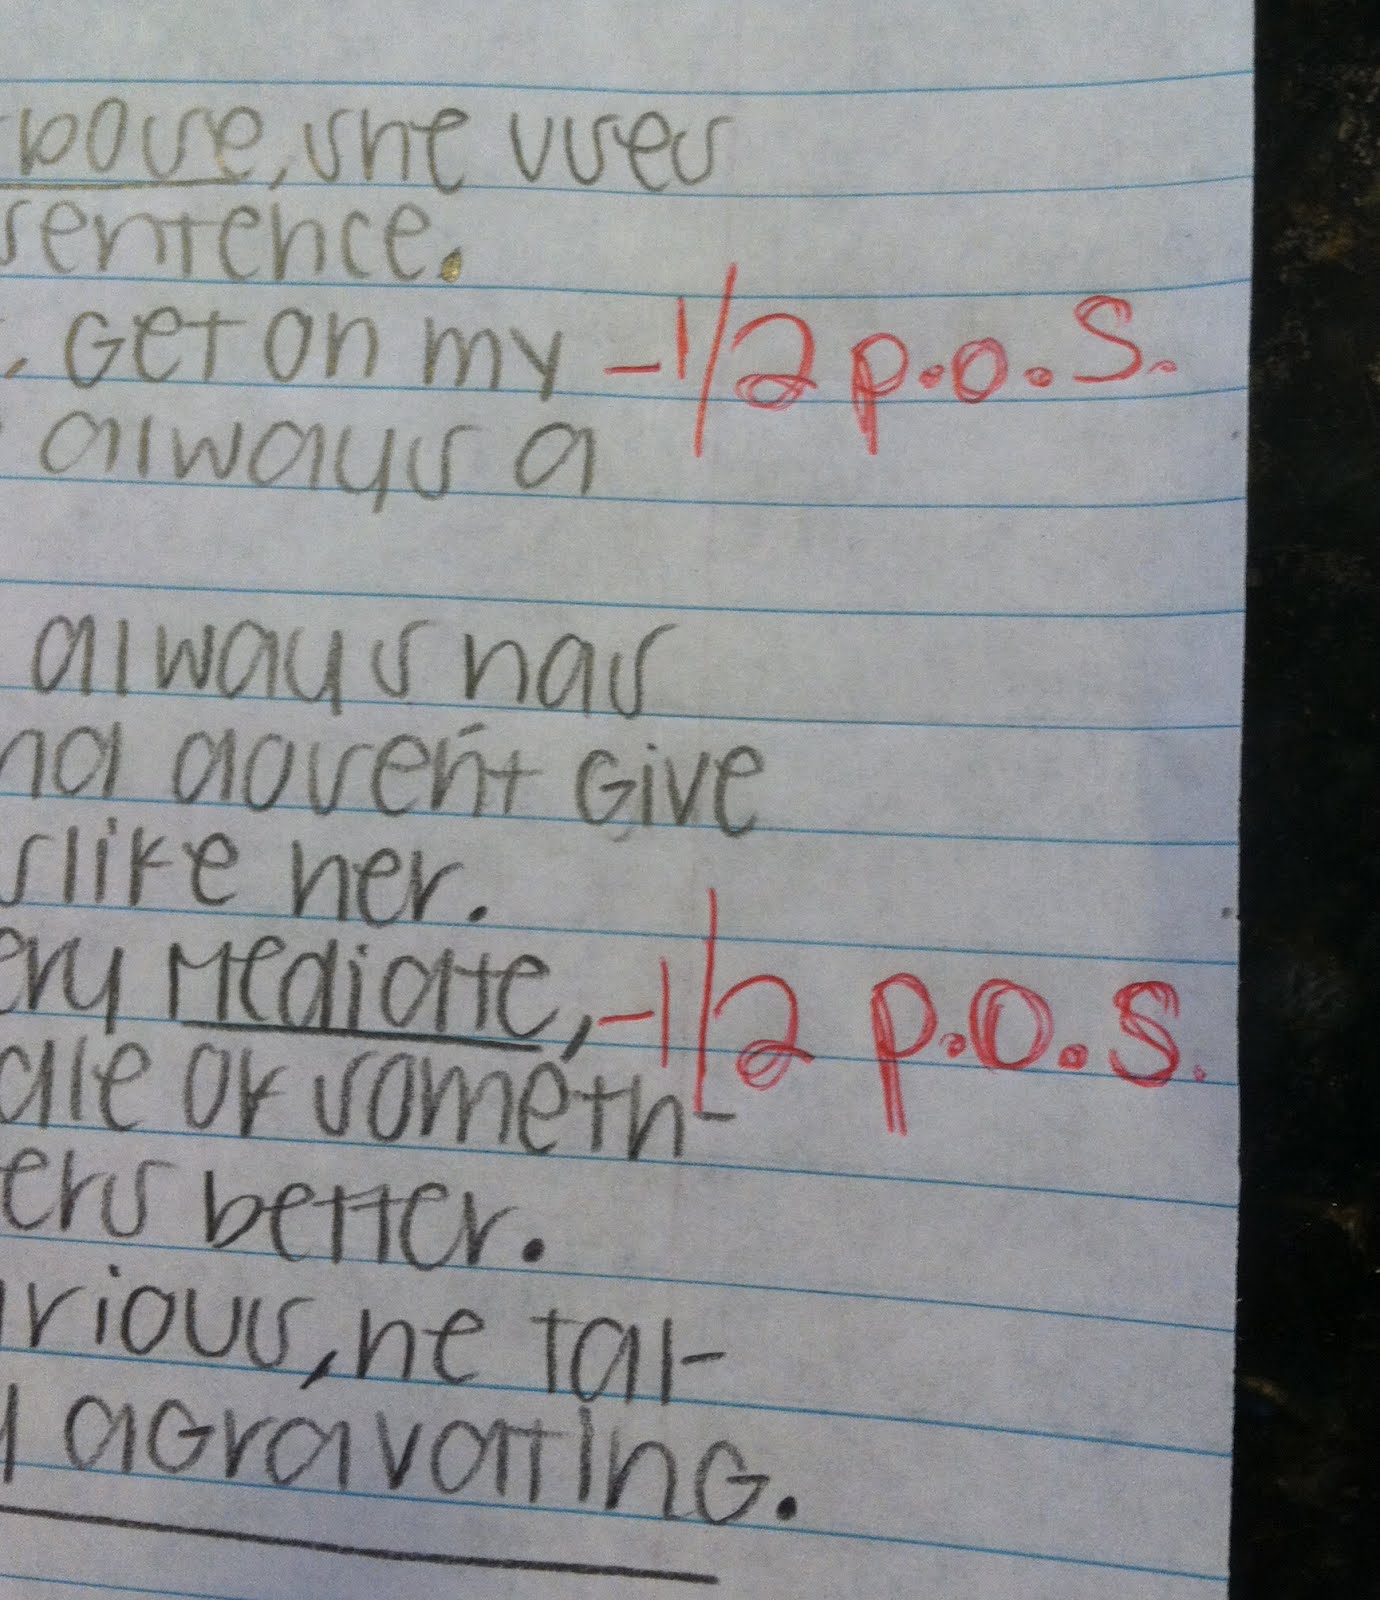 , she uses
sentence.
. Get on my -1/2 p.o.s.
always a
always has
doesn't Give
slike her.
ery Mediatte, -1/2 p.o.s.
ale or someth-
ers better.
rious, he tal-
agravatting.